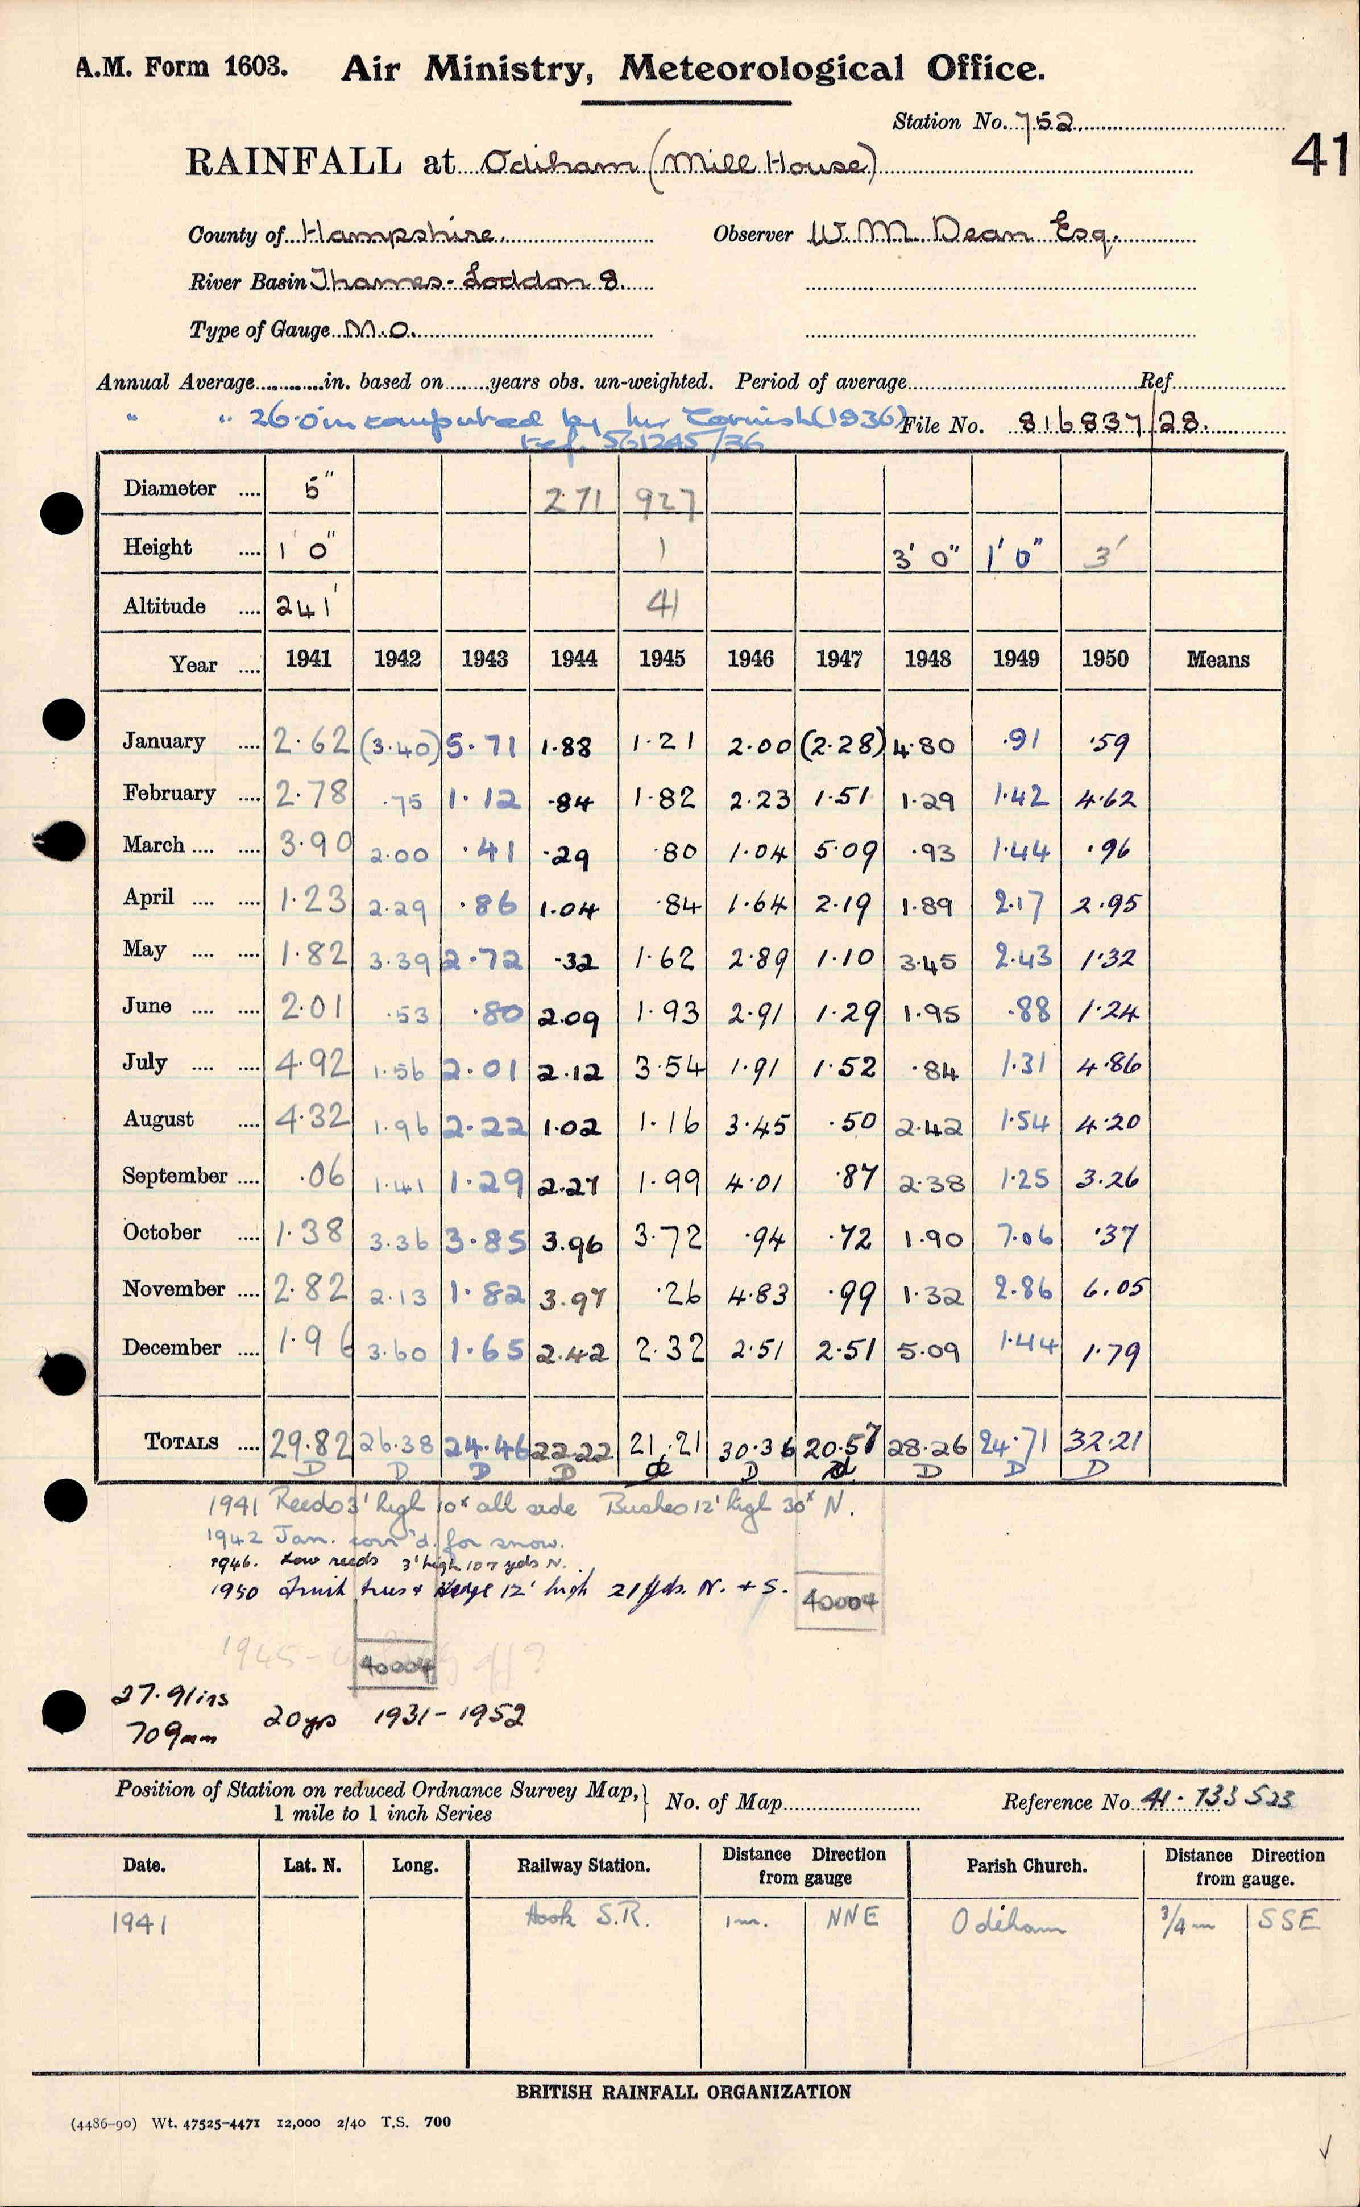 A.M. Form 1603. Air Ministry, Meteorological Office.
Station No. 752
41
RAINFALL at Odiham (Mill House)
County of Hampshire. Observer W. M. Dean Esq.
River Basin Thames-Loddon 8.
Type of Gauge M.O.
Annual Average............in. based on........years obs. un-weighted. Period of average Ref
" " 26.0 in computed by Mr Cornish (1936) File No. 816837/28.
Ref. 561245/36
Diameter .... 5" 2.71 927
Height .... 1' 0" 1 3' 0" 1' 0" 3'
Altitude .... 241' 41
Year .... 1941 1942 1943 1944 1945 1946 1947 1948 1949 1950 Means
January .... 2.62 (3.40) 5.71 1.88 1.21 2.00 (2.28) 4.80 .91 .59
February .... 2.78 .75 1.12 .84 1.82 2.23 1.51 1.29 1.42 4.62
March .... .... 3.90 2.00 .41 .29 .80 1.04 5.09 .93 1.44 .96
April .... .... 1.23 2.29 .86 1.04 .84 1.64 2.19 1.89 2.17 2.95
May .... .... 1.82 3.39 2.72 .32 1.62 2.89 1.10 3.45 2.43 1.32
June .... .... 2.01 .53 .80 2.09 1.93 2.91 1.29 1.95 .88 1.24
July .... .... 4.92 1.56 2.01 2.12 3.54 1.91 1.52 .84 1.31 4.86
August .... 4.32 1.96 2.22 1.02 1.16 3.45 .50 2.42 1.54 4.20
September .... .06 1.41 1.29 2.27 1.99 4.01 .87 2.38 1.25 3.26
October .... 1.38 3.36 3.85 3.96 3.72 .94 .72 1.90 7.06 .37
November .... 2.82 2.13 1.82 3.97 .26 4.83 .99 1.32 2.86 6.05
December .... 1.96 3.60 1.65 2.42 2.32 2.51 2.51 5.09 1.44 1.79
TOTALS .... 29.82 26.38 24.46 22.22 21.21 30.36 20.57 28.26 24.71 32.21
D D D D D D D D
1941 Reeds 3' high 10x all side Bushes 12' high 30x N.
1942 Jan. corr'd. for snow.
1946. Low reeds 3' high 10 yds N.
1950 Fruit trees + hedge 12' high 21 yds. N. + S.
40004
1945 -
40004
27.91 ins
709mm 20 yrs 1931 - 1952
Position of Station on reduced Ordnance Survey Map, } No. of Map Reference No 41.733523
1 mile to 1 inch Series
Date. Lat. N. Long. Railway Station. Distance Direction from gauge Parish Church. Distance Direction from gauge.
1941 Hook S.R. 1 m. NNE Odiham 3/4 m SSE
BRITISH RAINFALL ORGANIZATION
(4486-90) Wt. 47525-4471 12,000 2/40 T.S. 700